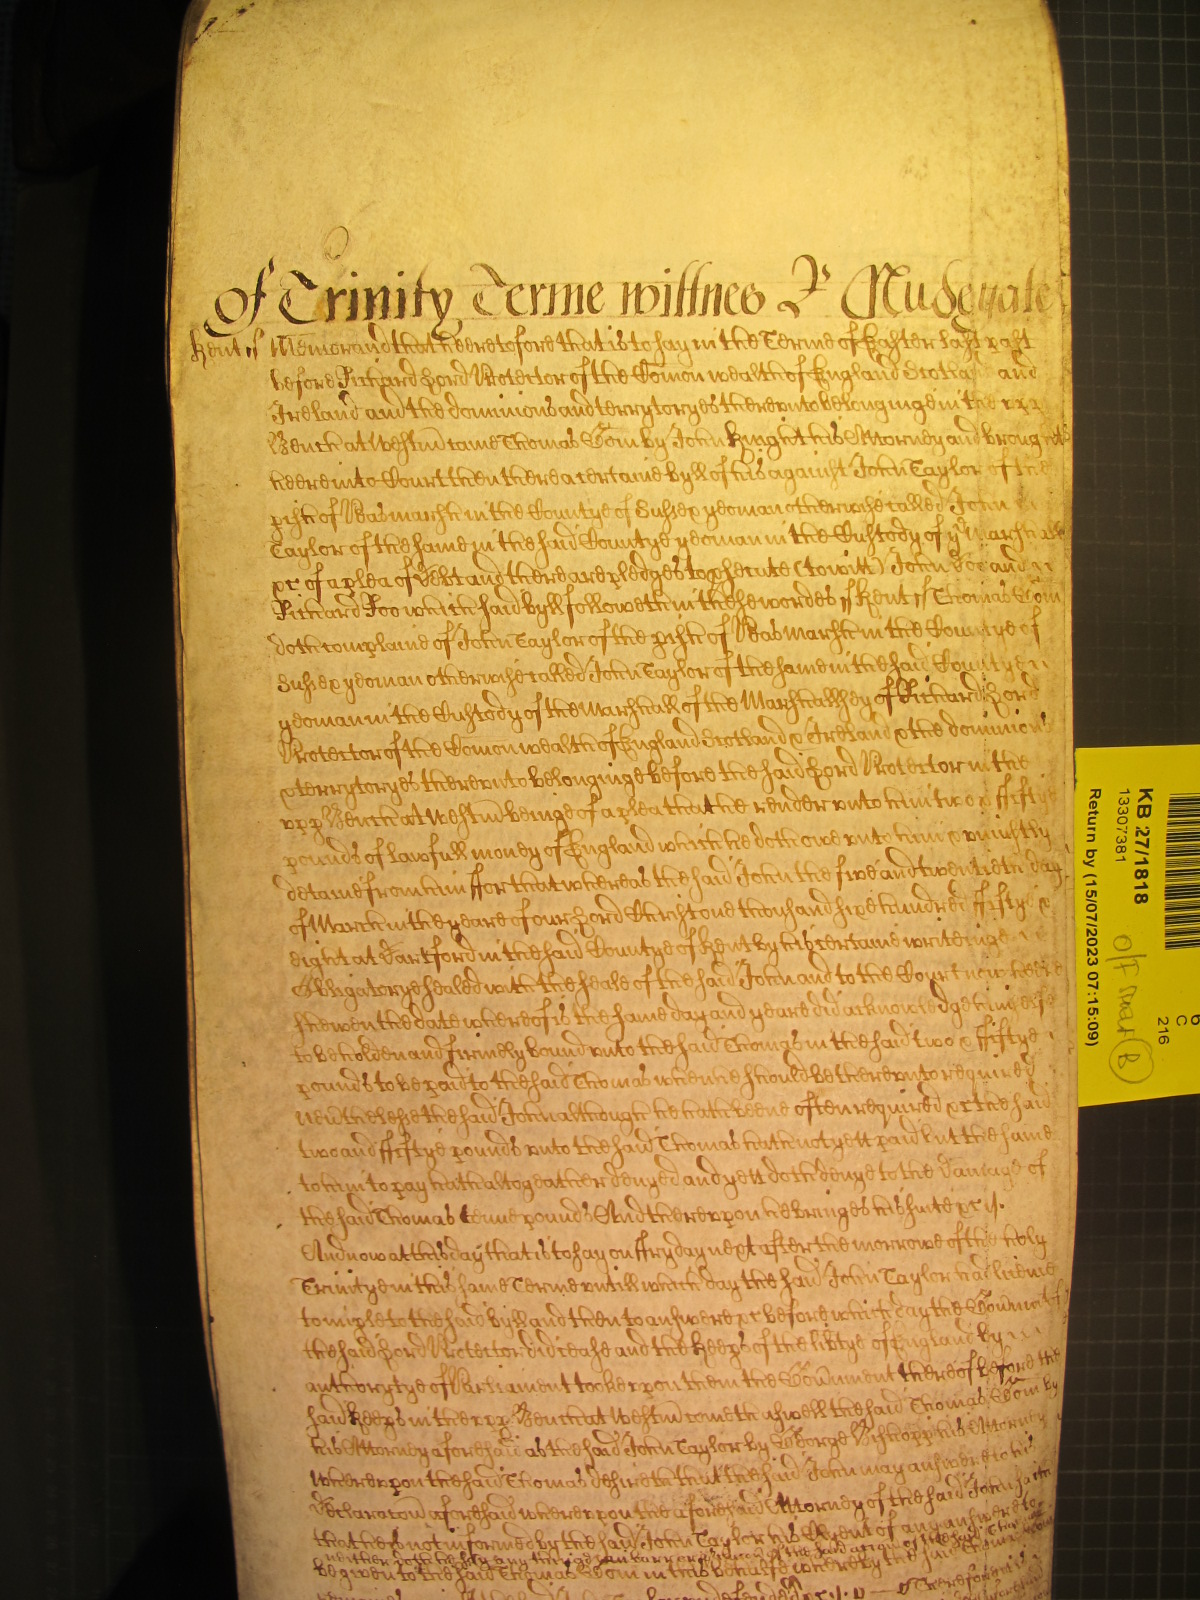 Of Trinity Terme wittnes R Nudegate
Kent ss Memorand that heeretofore that is to say in the Terme of Easter last past
before Richard Lord Protector of the Comon wealth of England Scotland and
Ireland and the dominions and terrytoryes thereunto belonginge in the upp
Bench at Westm came Thomas Com by John Knight his Attorney and brought
heere into Court then there a certaine byll of his against John Taylor of the
pish of Peasmarsh in the Countye of Sussex yeoman otherwise called John
Taylor of the same in the said Countye yeoman in the Custody of ye Marshall
&c of a plea of Debt and there are pledges to psecute (to witt) John Doe and
Richard Roo which said byll followeth in these wordes ss Kent ss Thomas Com
doth complaine of John Taylor of the pish of Peasmarsh in the Countye of
Sussex yeoman otherwise called John Taylor of the same in the said Countye
yeoman in the Custody of the Marshall of the Marshallsey of Richard Lord
Protector of the Comon wealth of England Scotland & Ireland & the dominions
& terrytoryes thereunto belonginge before the said Lord Protector in the
upp Bench at Westm beinge of a plea that he render unto him two & fiftye
pounds of lawfull money of England which he doth owe unto him & uniustly
detaine from him ffor that whereas the said John the five and twentieth day
of March in the yeare of our Lord Christ one thousand sixe hundred fiftye &
eight at Dartford in the said Countye of Kent by his certaine writeinge
Obligatorye sealed with the seale of the said John and to the Court now heere
shewen the date whereof is the same day and yeare did acknowledge himselfe
to be holden and firmely bound unto the said Thomas in the said two & fiftye
pounds to be paid to the said Thomas when he should be thereunto required
neverthelesse the said John although he hath beene often required &c the said
two and fiftye pounds unto the said Thomas hath not yett paid but the same
to him to pay hath altogeather denyed and yett doth denye to the damage of
the said Thomas tenne pounds And thereupon he bringes his suite &c
And now at this day that is to say on ffryday next after the morrowe of the holy
Trinitye in this same Terme untill which day the said John Taylor had licence
to imple to the said byll and then to answere &c before which day the Govmnt of
the said Lord Protector did cease and the Keeps of the libtye of England by
authorytye of Parliament tooke upon them the Govmment thereof before the
said Keeps in the upp Bench at Westm cometh aswell the said Thomas Com by
his Attorney aforesaid as the said John Taylor by George Bishopp his Attorney
whereupon the said Thomas desireth that the said John may answere to his
Declaracon aforesaid whereupon the aforesaid Attorney of the said John saith
that he is not informed by the said John Taylor his Clyent of any answere to
be given to the said Thomas Com in this behalfe
KB 27/1818
13307381
Return by (15/07/2023 07:15:09)
C
216